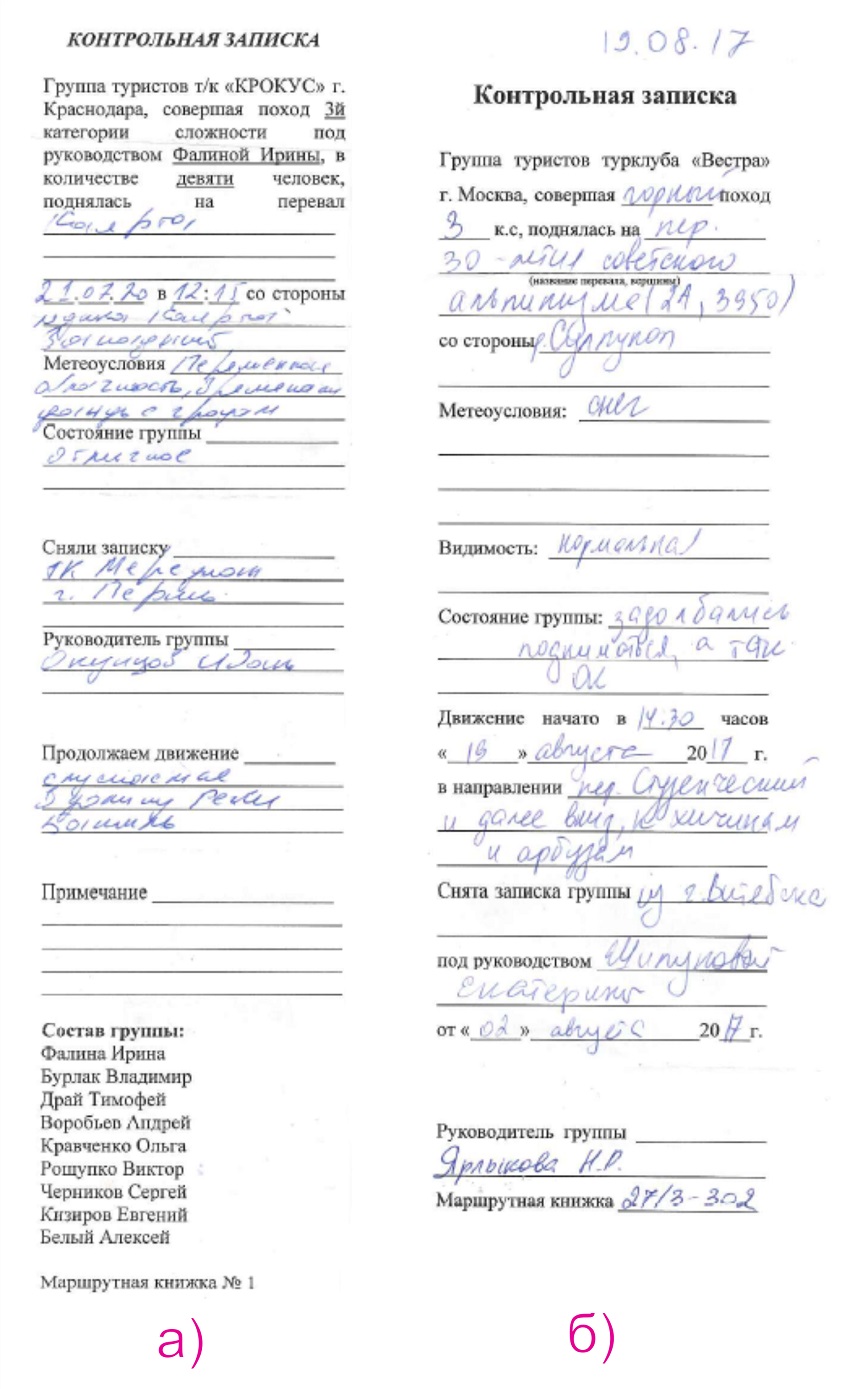 КОНТРОЛЬНАЯ ЗАПИСКА
Группа туристов т/к «КРОКУС» г.
Краснодара, совершая поход 3й
категории сложности под
руководством Фалиной Ирины, в
количестве девяти человек,
поднялась на перевал
21.07.20 в 12:15 со стороны
Западный
Метеоусловия Переменная
облачность, временами
дождь с градом
Состояние группы
Отличное
Сняли записку
ТК Меридиан
г. Пермь
Руководитель группы
Иван
Продолжаем движение
спускаемся
в долину реки
Примечание
Состав группы:
Фалина Ирина
Бурлак Владимир
Драй Тимофей
Воробьев Андрей
Кравченко Ольга
Рощупко Виктор
Черников Сергей
Кизиров Евгений
Белый Алексей
Маршрутная книжка № 1
а)
19.08.17
Контрольная записка
Группа туристов турклуба «Вестра»
г. Москва, совершая горный поход
3 к.с, поднялась на пер.
30-летия советского
(название перевала, вершины)
альпинизма (2А, 3950)
со стороны р.
Метеоусловия: снег
Видимость: нормальная
Состояние группы: задолбались
подниматься, а так
ОК
Движение начато в 14.30 часов
« 19 » августа 2017 г.
в направлении пер. Студенческий
и далее вниз, к хичинам
и арбузам
Снята записка группы из г. Витебска
под руководством Шипуновой
Екатерины
от « 02 » августа 2017 г.
Руководитель группы
Ярлыкова Н.Р.
Маршрутная книжка 27/3-302
б)